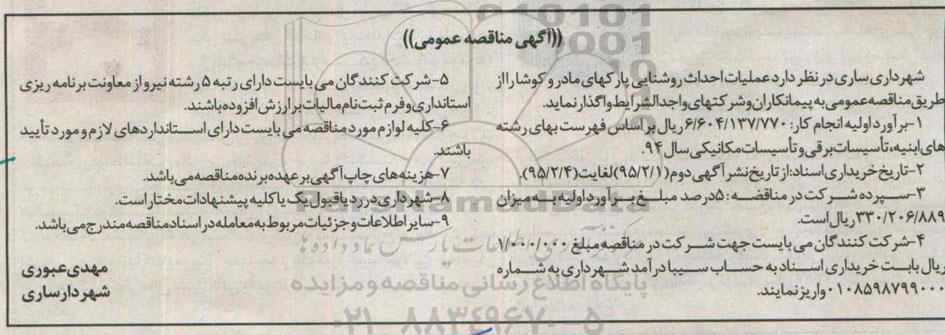 ((آگهی مناقصه عمومی))
شهرداری ساری در نظر دارد عملیات احداث روشنایی پارکهای مادر و کوشا را از
طریق مناقصه عمومی به پیمانکاران و شرکتهای واجدالشرایط واگذار نماید.
۱-برآورد اولیه انجام کار: ۶/۶۰۴/۱۳۷/۷۷۰ ریال بر اساس فهرست بهای رشته
های ابنیه، تأسیسات برقی و تأسیسات مکانیکی سال ۹۴.
۲-تاریخ خریداری اسناد: از تاریخ نشر آگهی دوم (۹۵/۲/۱) لغایت (۹۵/۲/۴).
۳-سپرده شرکت در مناقصه: ۵درصد مبلغ برآورد اولیه به میزان
۳۳۰/۲۰۶/۸۸۹ ریال است.
۴-شرکت کنندگان می بایست جهت شرکت در مناقصه مبلغ ۱/۰۰۰/۰۰۰
ریال بابت خریداری اسناد به حساب سیبا درآمد شهرداری به شماره
۰۱۰۸۵۹۸۷۹۹۰۰۰ واریز نمایند.
۵-شرکت کنندگان می بایست دارای رتبه ۵ رشته نیرو از معاونت برنامه ریزی
استانداری و فرم ثبت نام مالیات بر ارزش افزوده باشند.
۶-کلیه لوازم مورد مناقصه می بایست دارای استانداردهای لازم و مورد تأیید
باشند.
۷-هزینه های چاپ آگهی بر عهده برنده مناقصه می باشد.
۸-شهرداری در رد یا قبول یک یا کلیه پیشنهادات مختار است.
۹-سایر اطلاعات و جزئیات مربوط به معامله در اسناد مناقصه مندرج می باشد.
مهدی عبوری
شهردار ساری
ParsNamadData
پایگاه اطلاع رسانی مناقصه و مزایده
۰۲۱-۸۸۳۴۹۶۷۰-۵